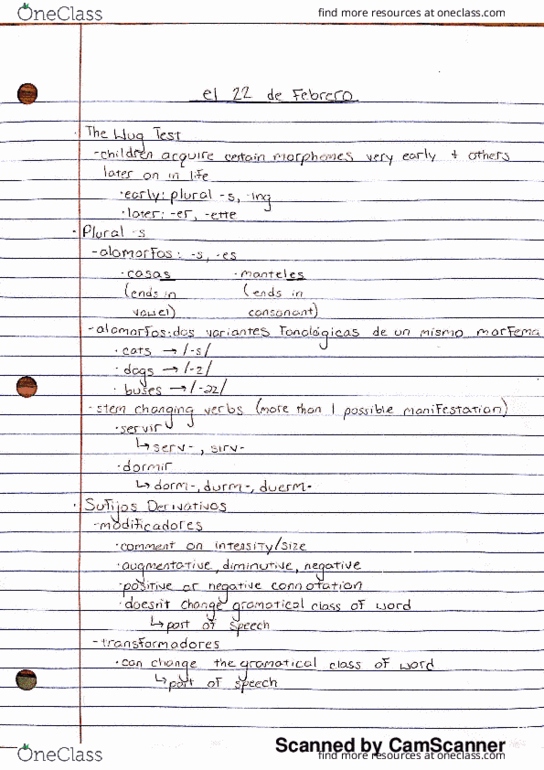 OneClass
find more resources at oneclass.com
el 22 de Febrero
· The Wug Test
-children acquire certain morphemes very early + others
later on in life
· early: plural -s, -ing
· later: -er, -ette
· Plural -s
-alomorfos: -s, -es
· casas · manteles
(ends in (ends in
vowel) consonant)
-alomorfos: dos variantes fonológicas de un mismo morfema
· cats → /-s/
· dogs → /-z/
· buses → /-əz/
-stem changing verbs (more than 1 possible manifestation)
· servir
↳ serv-, sirv-
· dormir
↳ dorm-, durm-, duerm-
· Sufijos Derivativos
-modificadores
· comment on intensity/size
· augmentative, diminutive, negative
· positive or negative connotation
· doesn't change gramatical class of word
↳ part of speech
-transformadores
· can change the gramatical class of word
↳ part of speech
Scanned by CamScanner
OneClass
find more resources at oneclass.com